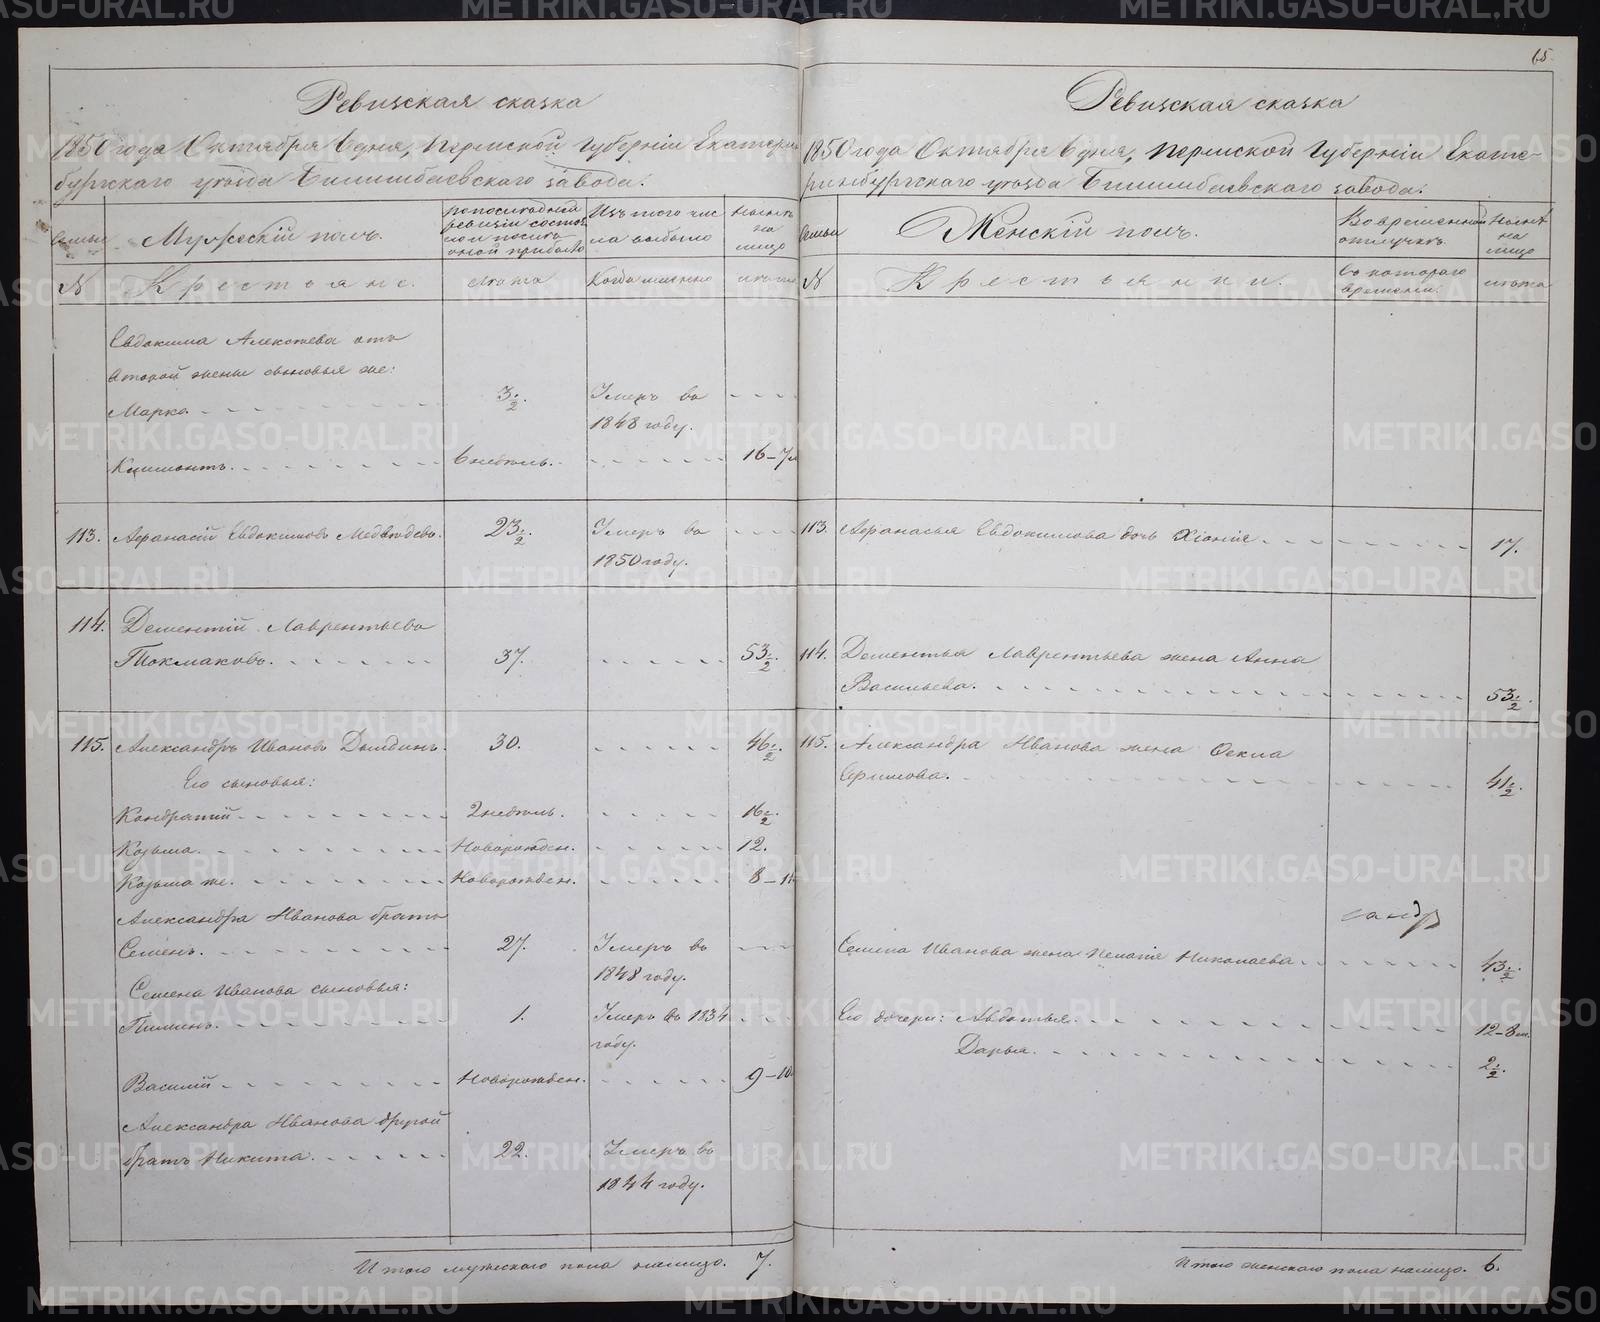 65
Ревизская сказка
1850 года Октября 6 дня, Пермской Губерніи Екатерин
бургскаго уезда Билимбаевскаго завода.
Семьи
Мужескій полъ.
по последней ревизіи состояло и после оной прибыло
Изъ того числа выбыло
Ныне на лицо
№
Крестьяне.
лета
Когда именно
лета
Евдокима Алексеева отъ
второй жены сыновья же:
Марко. 3½. Умеръ въ
1848 году.
Климонтъ. 6 недель. 16–7м
113. Афанасій Евдокимовъ Медведевъ. 23½. Умеръ въ
1850 году.
114. Дементій Лаврентьевъ
Токмаковъ. 37. 53½.
115. Александръ Ивановъ 30. 46½.
Его сыновья:
Кондратій. 2 недель. 16½.
Козьма. Новорожден. 12.
Козьма же. Новорожден. 8–11
Александра Иванова братъ
Семенъ. 27. Умеръ въ
1848 году.
Семена Иванова сыновья:
Пименъ. 1. Умеръ въ 1834
году.
Василій Новорожден. 9–10
Александра Иванова другой
братъ Никита. 22. Умеръ въ
1844 году.
Итого мужескаго пола налицо. 7.
Ревизская сказка
1850 года Октября 6 дня, Пермской Губерніи Екате-
ринбургскаго уезда Билимбаевскаго завода.
Семьи
Женскій полъ.
Во временной отлучкъ
Ныне на лицо
№
Крестьянки.
Съ котораго времени.
лета
113. Афанасья Евдокимова дочь Хіонія. 17.
114. Дементья Лаврентьева жена Анна
Васильева. 53½.
115. Александра Иванова жена Фекла
Ефимова. 41½.
Семена Иванова жена Пелагія Николаева 43½.
Его дочери: Авдотья. 12–8м.
Дарья. 2½.
Итого женскаго пола налицо. 6.
METRIKI.GASO-URAL.RU